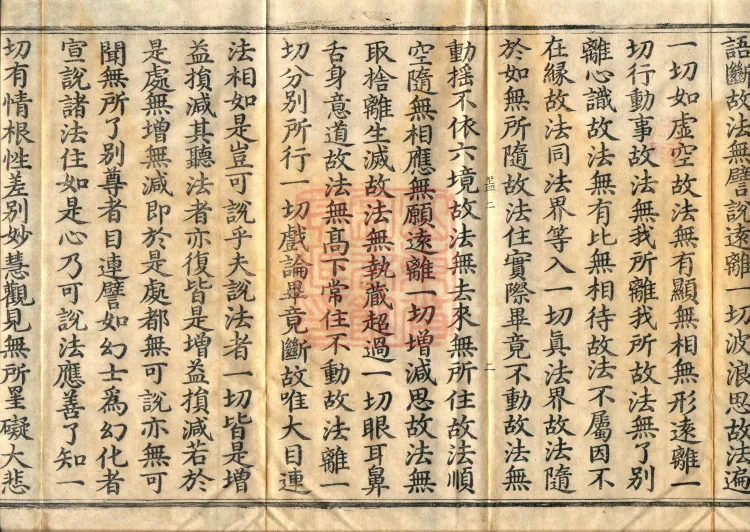 語斷故法無譬說遠離一切波浪思故法遍
一切如虛空故法無有顯無相無形遠離一
切行動事故法無我所離我所故法無了別
離心識故法無有比無相待故法不屬因不
在緣故法同法界等入一切眞法界故法隨
於如無所隨故法住實際畢竟不動故法無
二
動搖不依六境故法無去來無所住故法順
空隨無相應無願遠離一切增減思故法無
取捨離生滅故法無執藏超過一切眼耳鼻
舌身意道故法無髙下常住不動故法離一
切分別所行一切戲論畢竟斷故唯大目連
法相如是豈可說乎夫說法者一切皆是增
益損減其聽法者亦復皆是增益損減若於
是處無增無減即於是處都無可說亦無可
聞無所了別尊者目連譬如幻士爲幻化者
宣說諸法住如是心乃可說法應善了知一
切有情根性差別妙慧觀見無所罣礙大悲